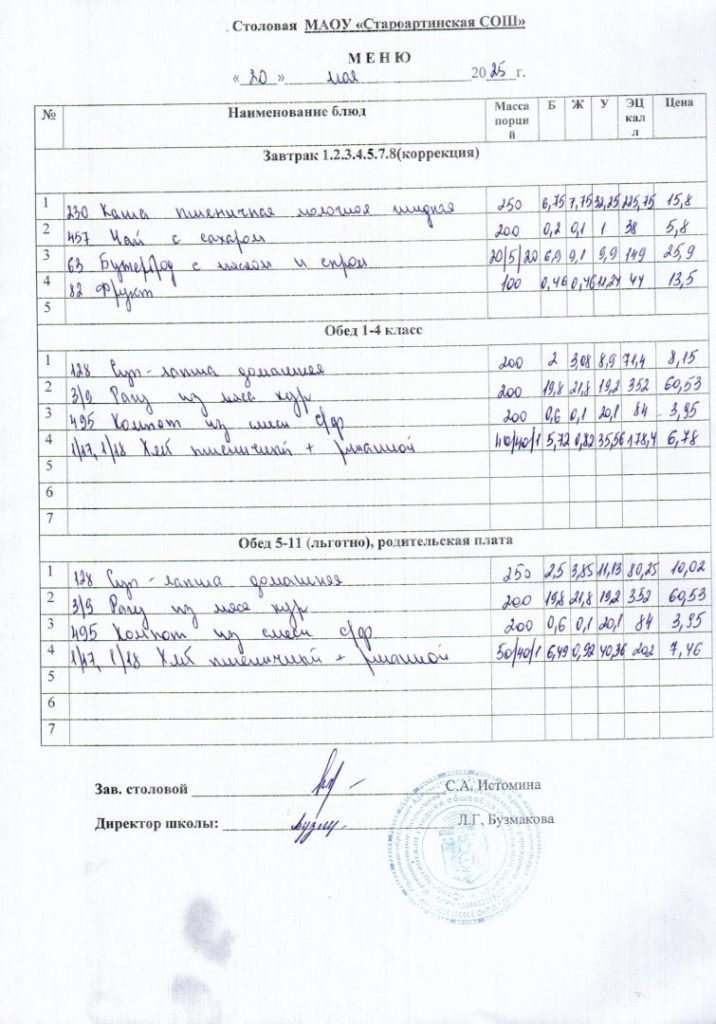 Столовая МАОУ «Староартинская СОШ»
М Е Н Ю
« 20 » мая 2025 г.
№ Наименование блюд Масса порций Б Ж У ЭЦ калл Цена
Завтрак 1.2.3.4.5.7.8(коррекция)
1 230 Каша пшеничная молочная жидкая 250 6,75 7,75 32,25 225,75 15,8
2 457 Чай с сахаром 200 0,2 0,1 1 38 5,8
3 63 Бутерброд с маслом и сыром 20/5/20 6,9 9,1 9,9 149 25,9
4 82 Фрукт 100 0,46 0,46 11,27 44 13,5
5
Обед 1-4 класс
1 128 Суп-лапша домашняя 200 2 3,08 8,9 71,4 8,15
2 3/9 Рагу из мяса кур 200 19,8 21,8 19,2 352 60,53
3 495 Компот из смеси с/фр 200 0,6 0,1 20,1 84 3,95
4 1/17, 1/18 Хлеб пшеничный + ржаной 40/40/1 5,72 0,82 35,56 178,4 6,78
5
6
7
Обед 5-11 (льготно), родительская плата
1 128 Суп-лапша домашняя 250 2,5 3,85 11,13 80,25 10,02
2 3/9 Рагу из мяса кур 200 19,8 21,8 19,2 352 60,53
3 495 Компот из смеси с/фр 200 0,6 0,1 20,1 84 3,95
4 1/17, 1/18 Хлеб пшеничный + ржаной 50/40/1 6,49 0,92 40,36 202 7,46
5
6
7
Зав. столовой С.А. Истомина
Директор школы: Л.Г. Бузмакова